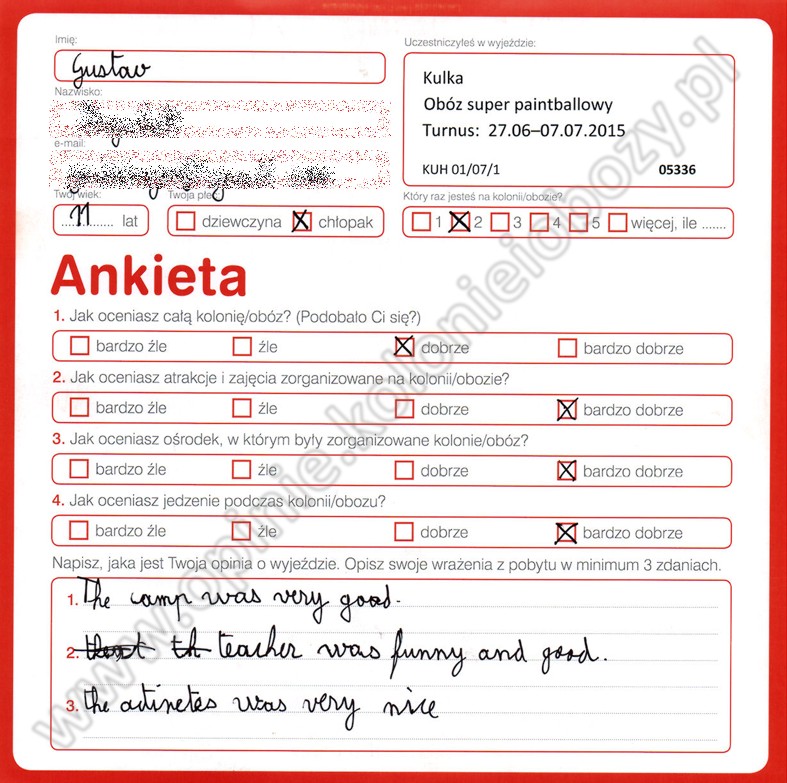 Imię:
Gustav
Nazwisko:
e-mail:
Twój wiek:
11 lat
Twoja płeć
dziewczyna chłopak
Uczestniczyłeś w wyjeździe:
Kulka
Obóz super paintballowy
Turnus: 27.06–07.07.2015
KUH 01/07/1 05336
Który raz jesteś na kolonii/obozie?
1 2 3 4 5 więcej, ile .......
Ankieta
1. Jak oceniasz całą kolonię/obóz? (Podobało Ci się?)
bardzo źle źle dobrze bardzo dobrze
2. Jak oceniasz atrakcje i zajęcia zorganizowane na kolonii/obozie?
bardzo źle źle dobrze bardzo dobrze
3. Jak oceniasz ośrodek, w którym były zorganizowane kolonie/obóz?
bardzo źle źle dobrze bardzo dobrze
4. Jak oceniasz jedzenie podczas kolonii/obozu?
bardzo źle źle dobrze bardzo dobrze
Napisz, jaka jest Twoja opinia o wyjeździe. Opisz swoje wrażenia z pobytu w minimum 3 zdaniach.
1. The camp was very good.
2. th teacher was funny and good.
3. the actinetes was very nice
www.opinie.kolonieiobozy.pl